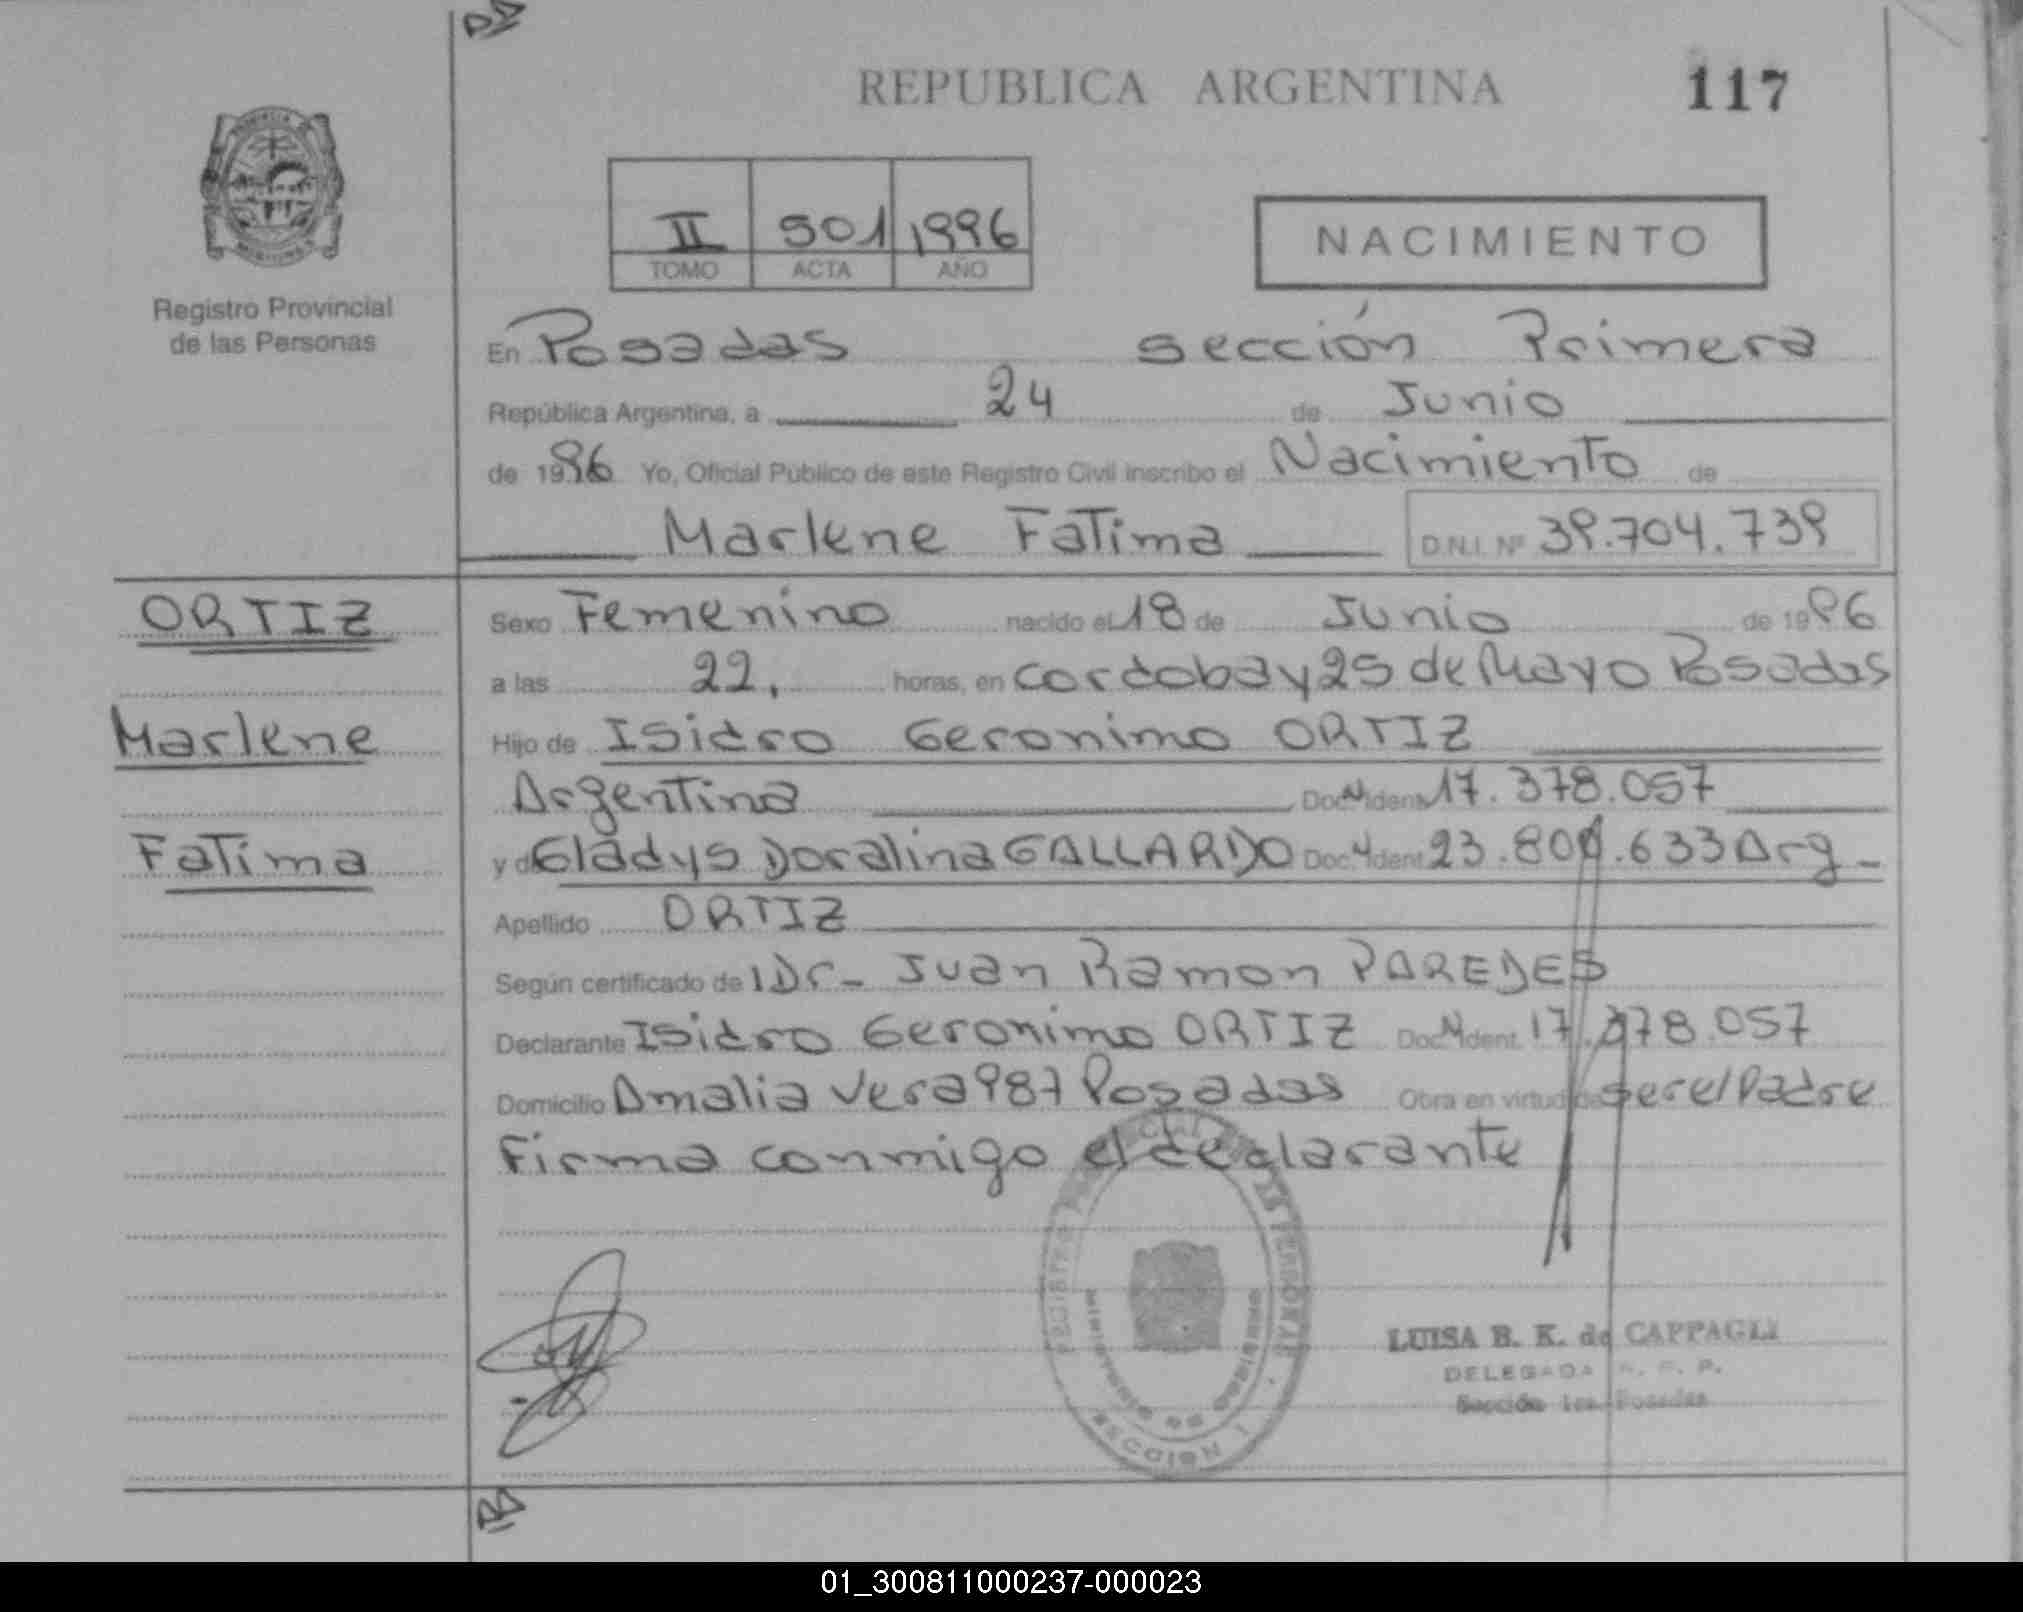 REPUBLICA ARGENTINA 117
II 501 1996
TOMO ACTA AÑO
NACIMIENTO
Registro Provincial
de las Personas
En Posadas sección Primera
República Argentina, a 24 de Junio
de 1996 Yo, Oficial Público de este Registro Civil inscribo el Nacimiento de
Marlene Fatima D.N.I. Nº 39.704.739
ORTIZ
Marlene
Fatima
Sexo Femenino nacido el 18 de Junio de 1996
a las 22. horas, en Cordoba y 25 de Mayo Posadas
Hijo de Isidro Geronimo ORTIZ
Argentina Doc. N Ident. 17.378.057
y de Gladys Doralina GALLARDO Doc. N Ident. 23.800.633 Arg-
Apellido ORTIZ
Según certificado de Dr- Juan Ramon PAREDES
Declarante Isidro Geronimo ORTIZ Doc. N Ident. 17.378.057
Domicilio Amalia Vera 987 Posadas Obra en virtud de ser el Padre
Firma conmigo el declarante
REGISTRO PROVINCIAL DE LAS PERSONAS
MINISTERIO DE GOBIERNO
SECCION 1
LUISA B. K. de CAPPAGLI
DELEGADA R. P. P.
Sección 1ra Posadas
01_300811000237-000023